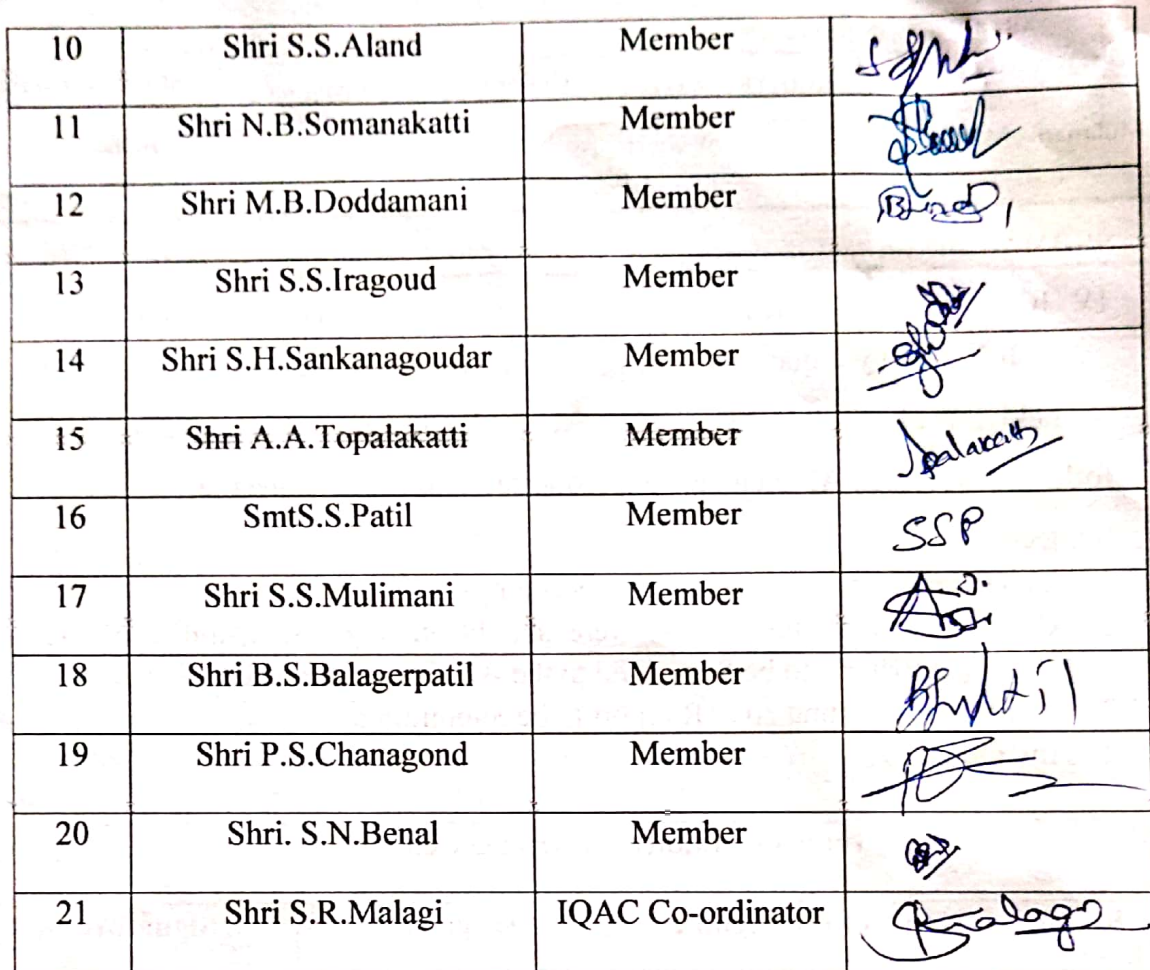 10 Shri S.S.Aland Member
11 Shri N.B.Somanakatti Member
12 Shri M.B.Doddamani Member
13 Shri S.S.Iragoud Member
14 Shri S.H.Sankanagoudar Member
15 Shri A.A.Topalakatti Member
16 SmtS.S.Patil Member SSP
17 Shri S.S.Mulimani Member
18 Shri B.S.Balagerpatil Member
19 Shri P.S.Chanagond Member
20 Shri. S.N.Benal Member
21 Shri S.R.Malagi IQAC Co-ordinator